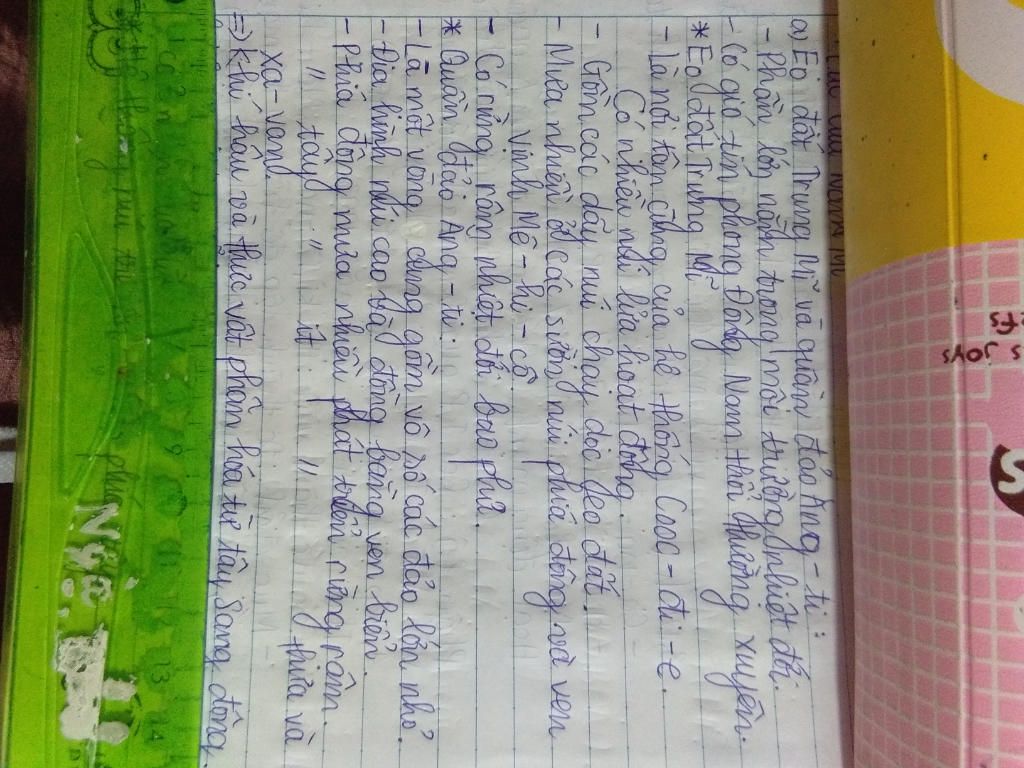 a) Eo đất Trung Mĩ và quần đảo Ăng-ti:
- Phần lớn nằm trong môi trường nhiệt đới.
- Có gió tín phong Đông Nam thổi thường xuyên.
* Eo đất Trung Mĩ
- Là nơi tận cùng của hệ thống Cooc-đi-e.
Có nhiều núi lửa hoạt động.
- Gồm các dãy núi chạy dọc eo đất.
- Mưa nhiều ở các sườn núi phía đông và ven
vịnh Mê-hi-cô
- Có rừng rậm nhiệt đới bao phủ.
* Quần đảo Ăng-ti:
- Là một vòng cung gồm vô số các đảo lớn nhỏ.
- Địa hình núi cao và đồng bằng ven biển.
- Phía đông mưa nhiều phát triển rừng rậm.
" tây " ít " thưa và
xa-van
=> Khí hậu và thực vật phân hóa từ tây sang đông
9
13
14
JOYS